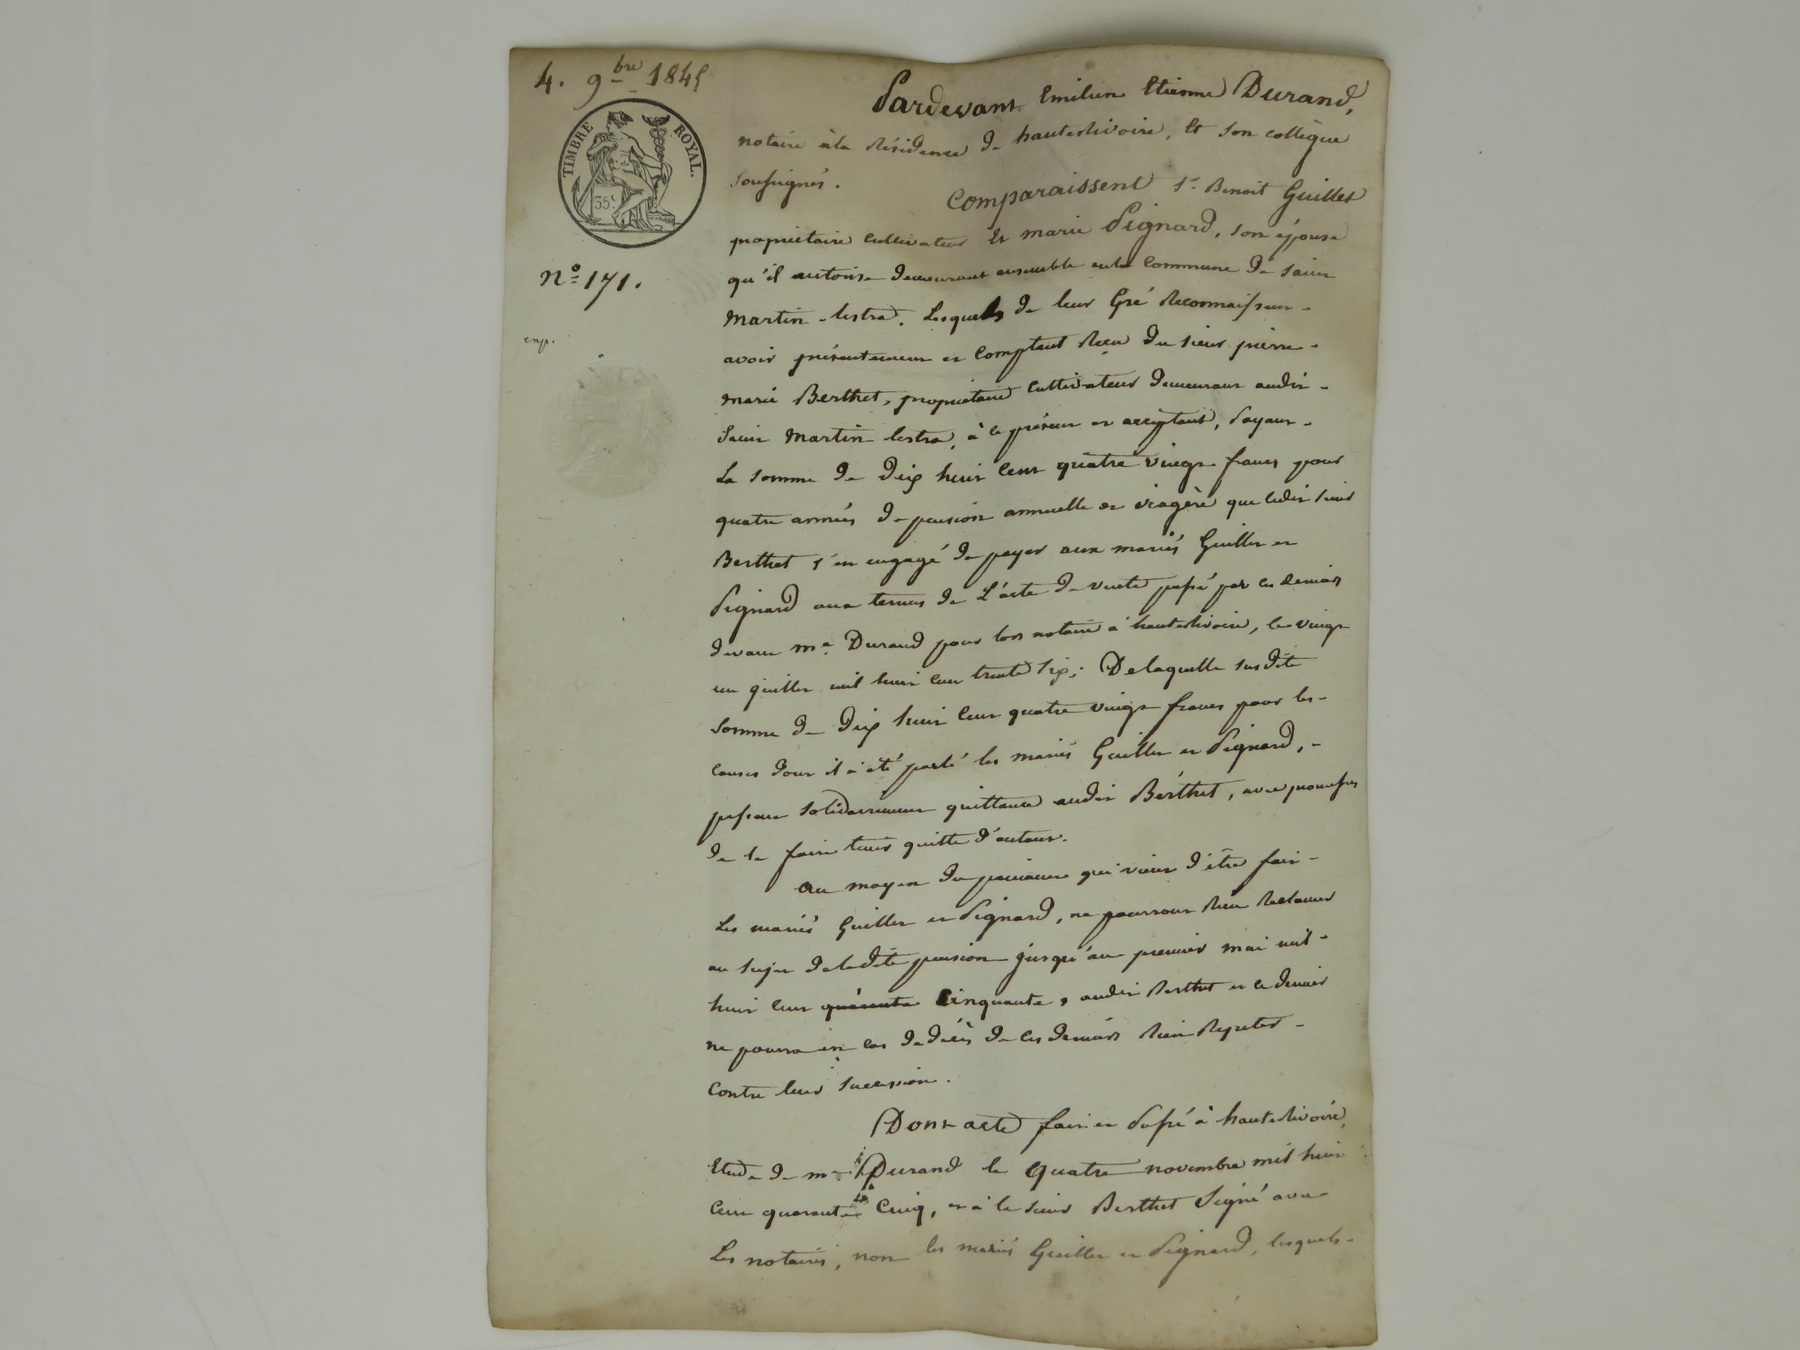 4. 9bre 1845
TIMBRE ROYAL.
35c
Pardevant Emilien Etienne Durand,
notaire à la Résidence de hauterivoire, et son collègue
Soussignés.
Comparaissent Sr. Benoit Guillet
propriétaire cultivateur et marie Pignard, son épouse
nº 171.
qu'il autorise demeurant ensemble en la Commune de Saint
Martin-lestra. Lesquels de leur Gré Reconnaissent
exp.
avoir présentement et Comptant Reçu du sieur pierre
marie Berthet, propriétaire Cultivateur demeurant audit
Saint Martin lestra, à ce présent et acceptant, payant
La Somme de dix huit Cent quatre vingt francs pour
quatre années de pension annuelle et viagère que ledit Sieur
Berthet s'est engagé de payer aux mariés Guillet et
Pignard aux termes de L'acte de vente passé par ces derniers
devant me. Durand pour lors notaire à hauterivoire, le vingt
un juillet mil huit cent trente six; De laquelle susdite
Somme de dix huit Cent quatre vingt francs pour les
Causes dont il a été parlé les mariés Guillet et Pignard,
passent Solidairement quittance audit Berthet, avec promesses
de le faire tenir quitte d'autant.
au moyen du paiement qui vient d'être fait
Les mariés Guillet et Pignard, ne pourront Rien Réclamer
au sujet de ladite pension jusqu'au premier mai mil
huit Cent quarante Cinquante, audit Berthet et ce dernier
ne pourra en cas de décès de ces derniers Rien Répéter
Contre leur Succession.
Dont acte fait et Passé à hauterivoire,
Etude de me Durand le quatre novembre mil huit
Cent quarante Cinq, et a le Sieur Berthet Signé avec
Les notaires, non les mariés Guillet et Pignard, lesquels